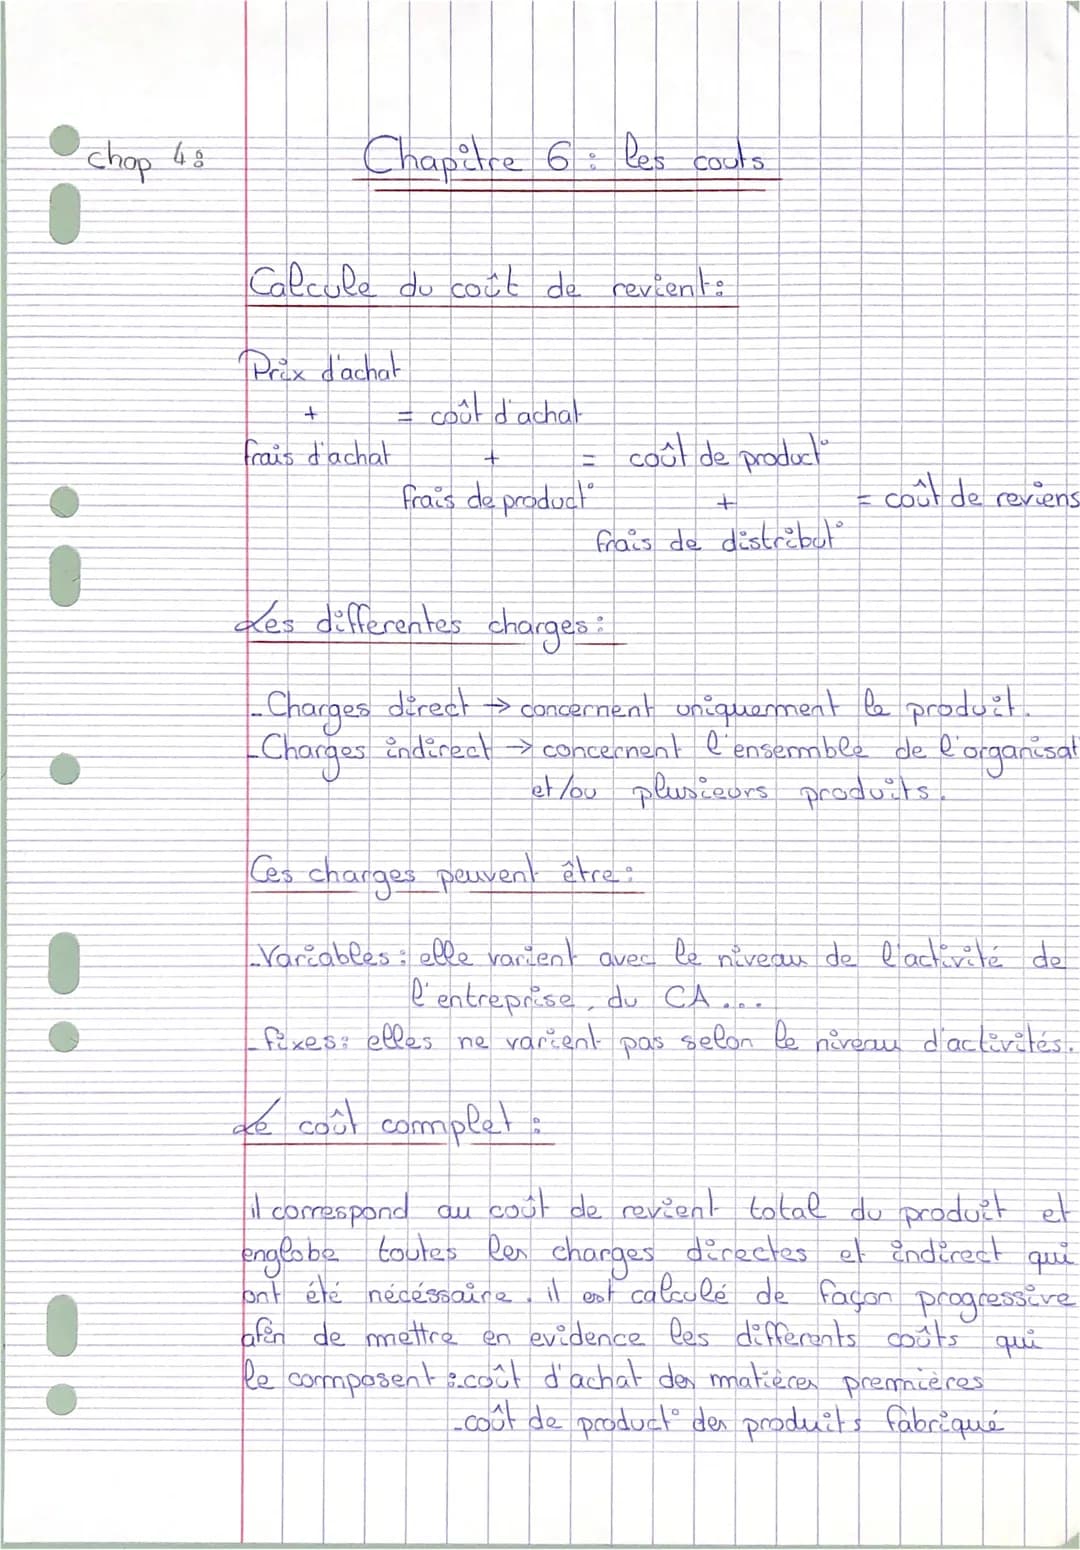 chap 4:
Chapitre 6 : les couts
Calcule du coût de revient :
Prix d'achat
+ = coût d'achat
frais d'achat + = coût de product°
frais de product° + = coût de reviens
frais de distribut°
Les differentes charges :
- Charges direct → concernent uniquement le produit.
- Charges indirect → concernent l'ensemble de l'organisat
et/ou plusieurs produits.
Ces charges peuvent être :
- Variables : elle varient avec le niveau de l'activité de
l'entreprise, du CA...
- fixes : elles ne varient pas selon le niveau d'activités.
Le coût complet :
il correspond au coût de revient total du produit et
englobe toutes les charges directes et indirect qui
ont été nécéssaire. il est calculé de façon progressive
afin de mettre en evidence les differents coûts qui
le composent : - coût d'achat des matières premières
- coût de product° des produits fabriqué